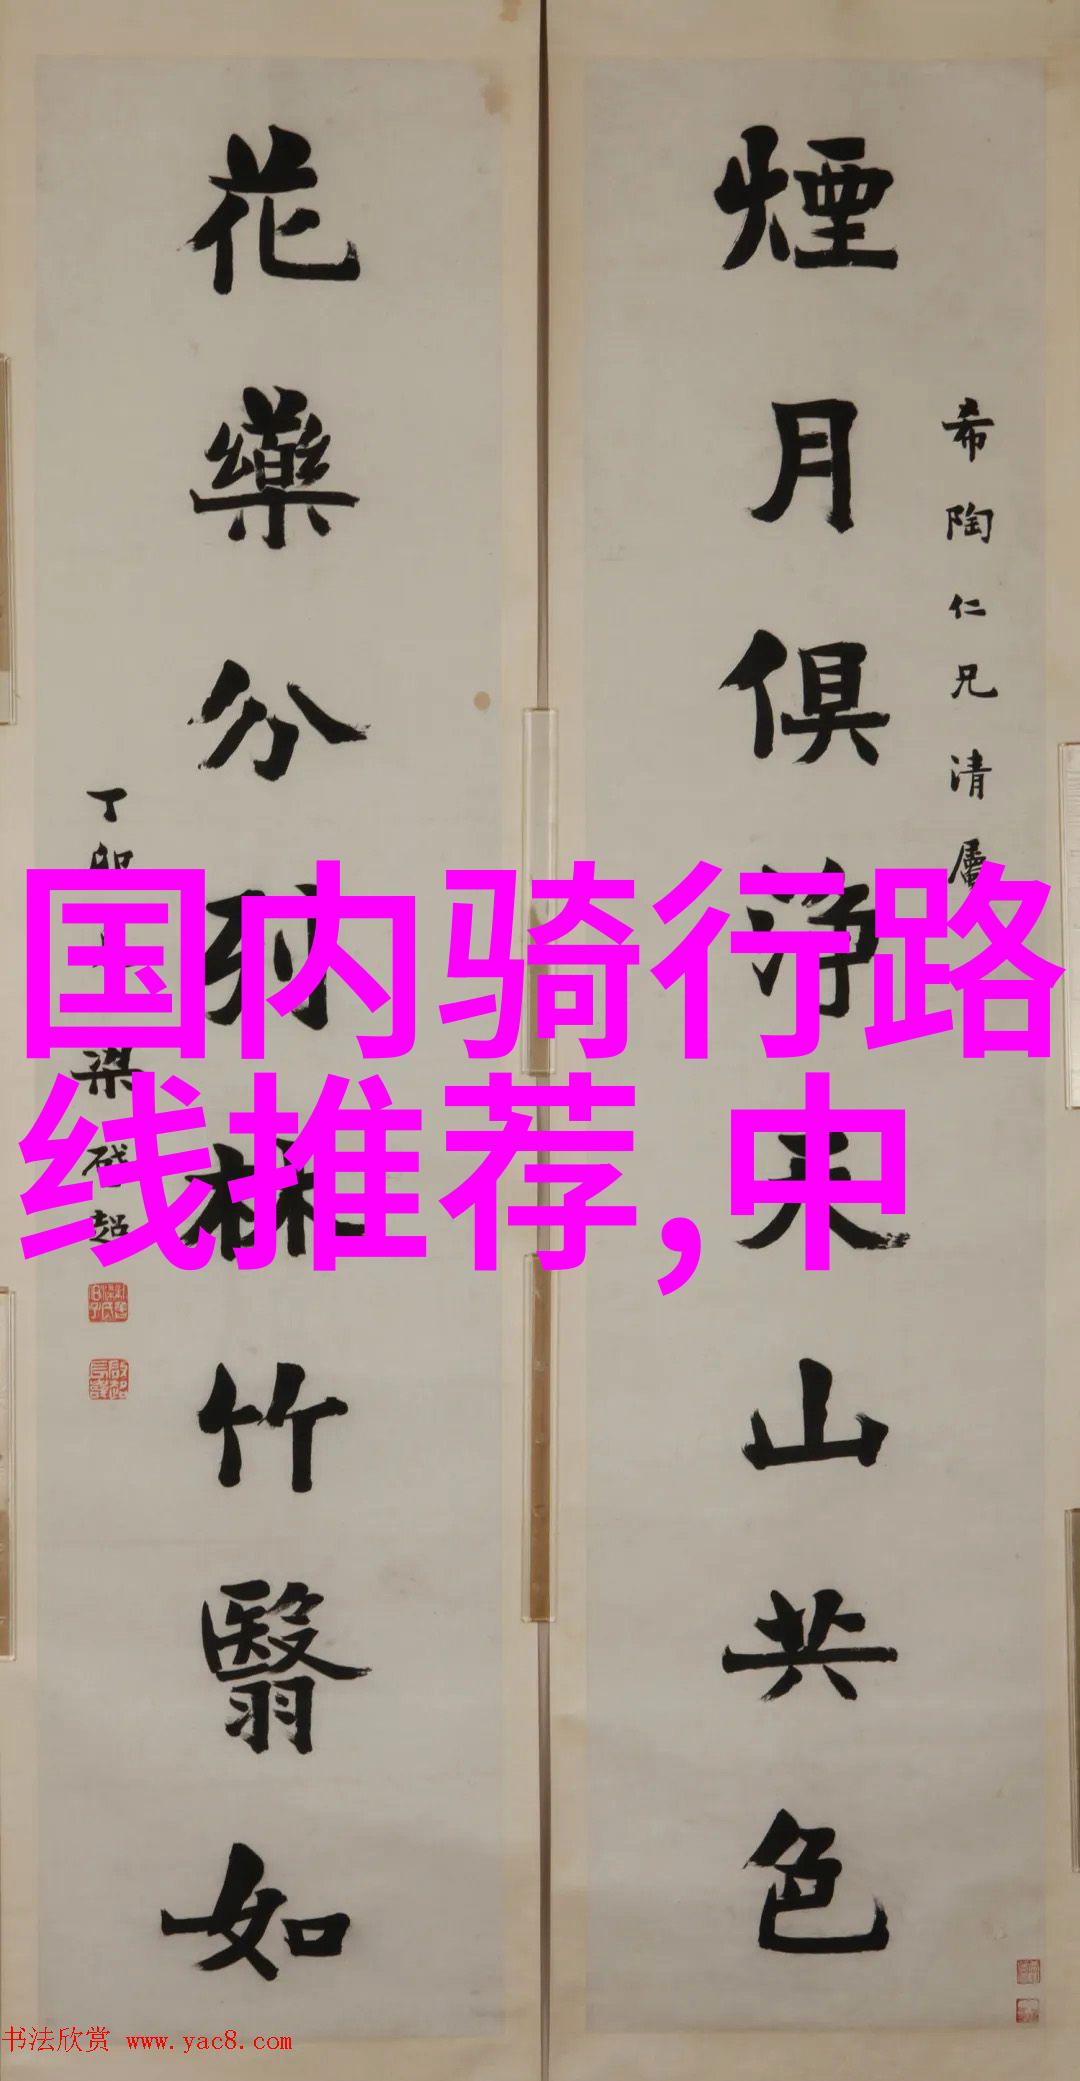 煙月俱淨天山共色
希陶仁兄清屬
花藥分列林竹翳如
丁卯
梁啓超
国内骑行路
线推荐,中
书法欣赏 www.yac8.com